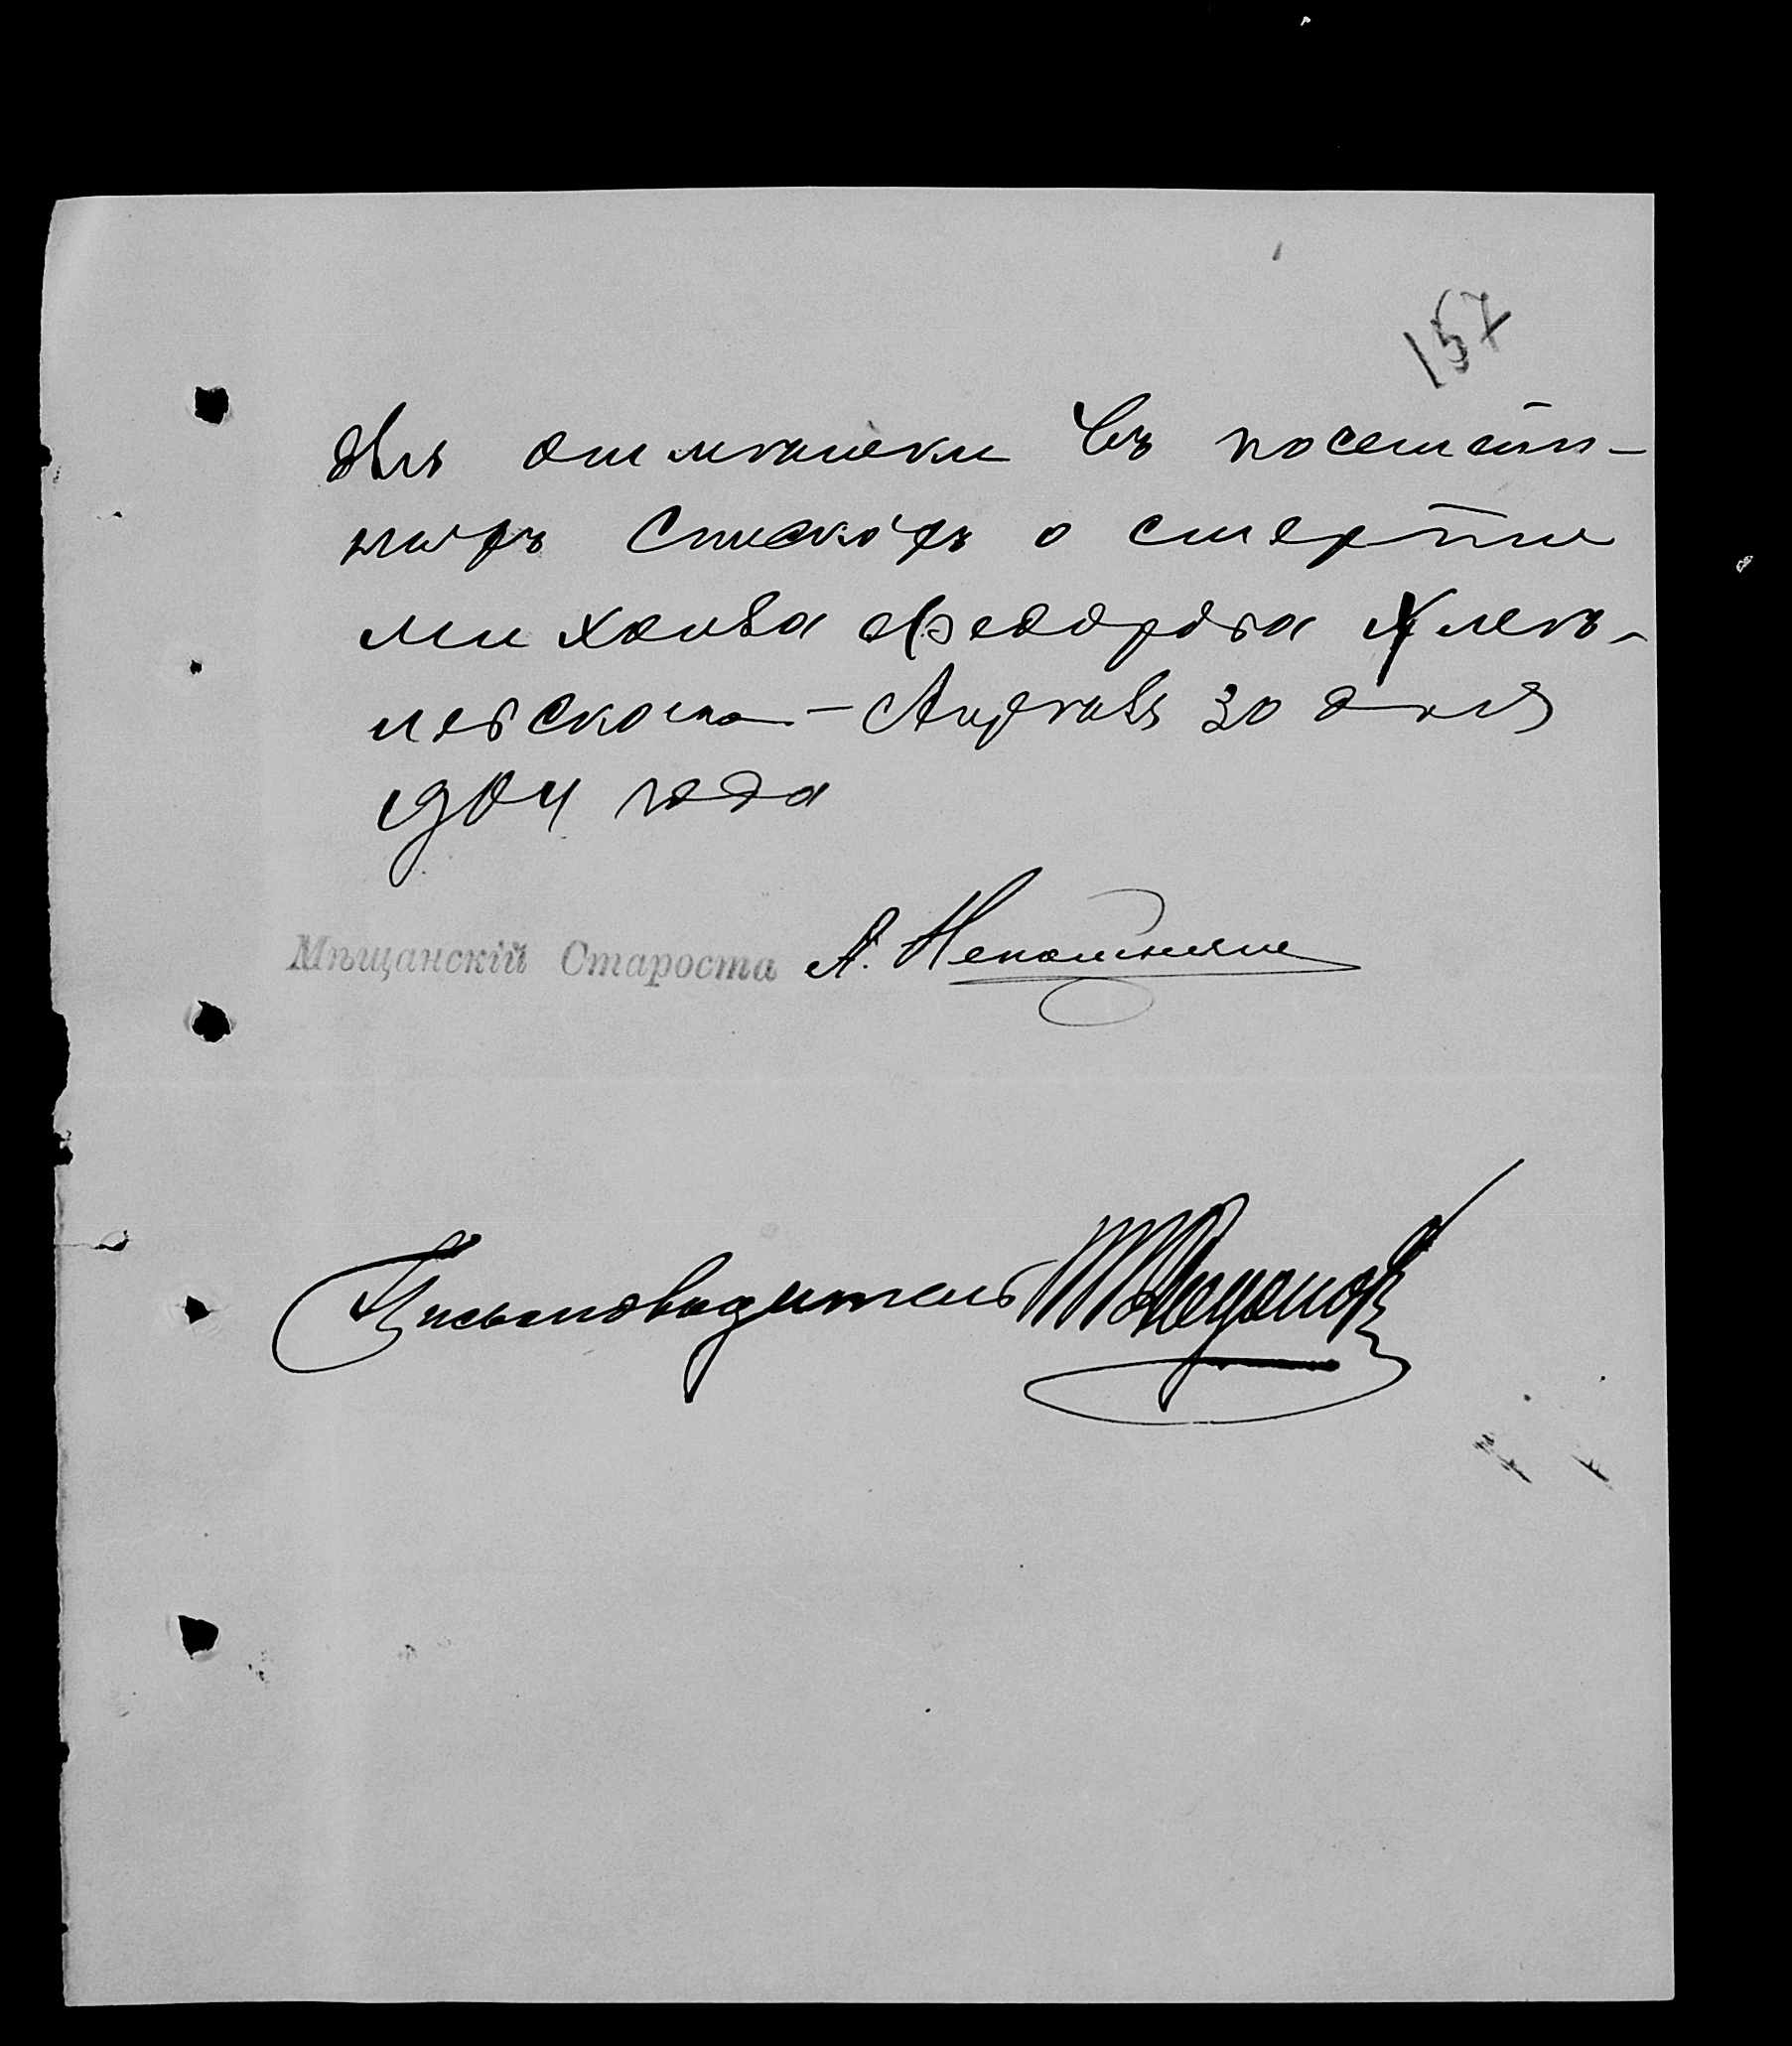 157
для отметки въ посемей-
ныхъ спискахъ о смерти
Михаила Федорова
Апреля 30 дня
1904 года
Мѣщанскій Староста А.
Письмоводитель